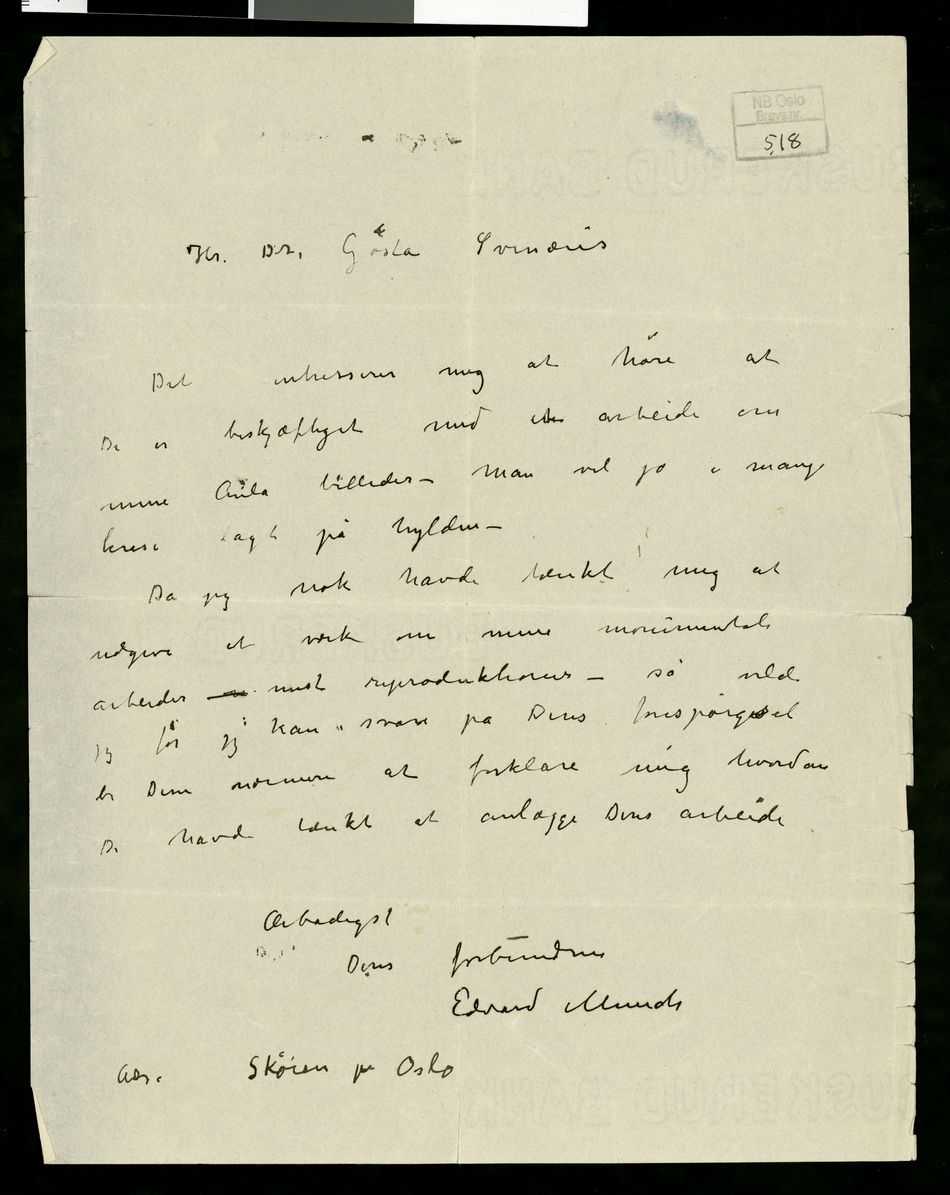 NB Oslo
Brevs.nr.
518
Hr. Dr. Gösta Svenæus
Det intresserer mig at höre at
De er beskjæftiget med et arbeide om
mine Aula billeder – Man vil jo i mange
krese lagt på hylden –
Da jeg nok havde tænkt mig at
udgive et værk om mine monumentale
arbeider med reproduktioner – så vilde
jeg før jeg kan svare på Deres forespørgsel
be Dem nærmere at forklare mig hvordan
De havde tænkt at anlægge Deres arbeide
Ærbødigst
Deres forbundne
Edvard Munch
Adr. Sköien pr Oslo
BUSKERUD BANK